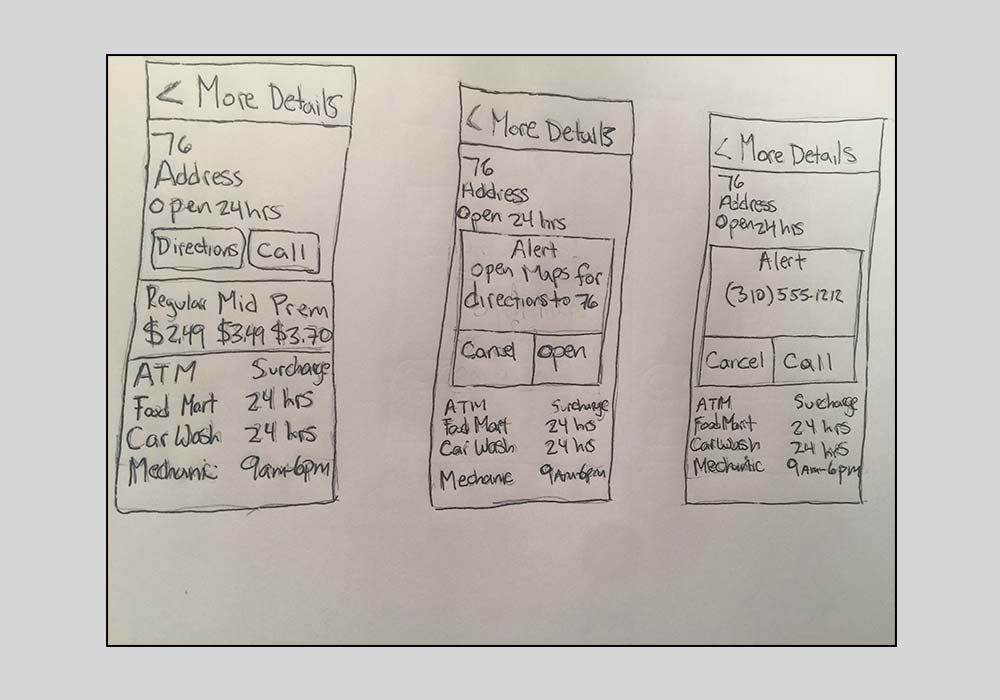 < More Details
76
Address
Open 24hrs
Directions Call
Regular Mid Prem
$2.49 $3.49 $3.70
ATM Surcharge
Food Mart 24 hrs
Car Wash 24 hrs
Mechanic 9am-6pm
< More Details
76
Address
Open 24 hrs
Alert
Open Maps for
directions to 76
Cancel Open
ATM Surcharge
Food Mart 24 hrs
Car Wash 24 hrs
Mechanic 9Am-6pm
< More Details
76
Address
Open 24 hrs
Alert
(310) 555-1212
Cancel Call
ATM Surcharge
Food Mart 24 hrs
Car Wash 24 hrs
Mechanic 9Am-6pm